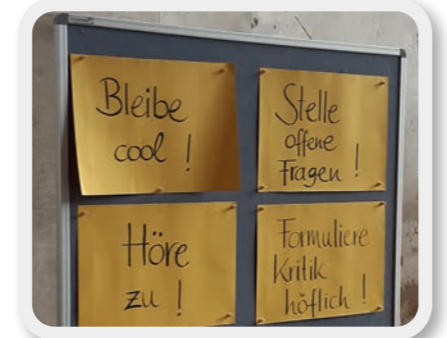 Bleibe
cool !
Stelle
offene
Fragen !
Höre
zu !
Formuliere
Kritik
höflich !